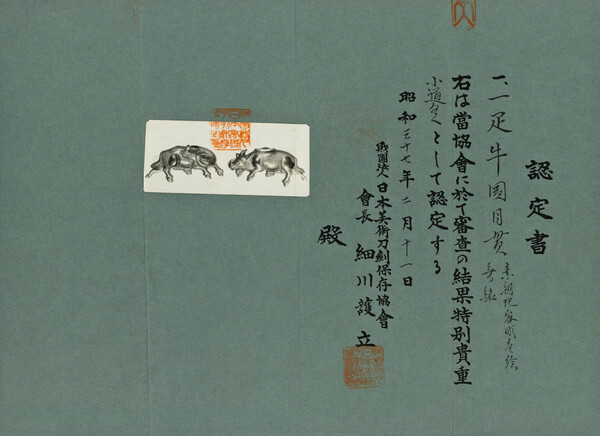 認定書
一、二疋牛図目貫
赤銅地容彫色絵
無銘
右は當協會に於て審査の結果特別貴重
小道具として認定する
昭和三十七年二月十一日
財團法人日本美術刀劍保存協會
會長 細川護立
殿